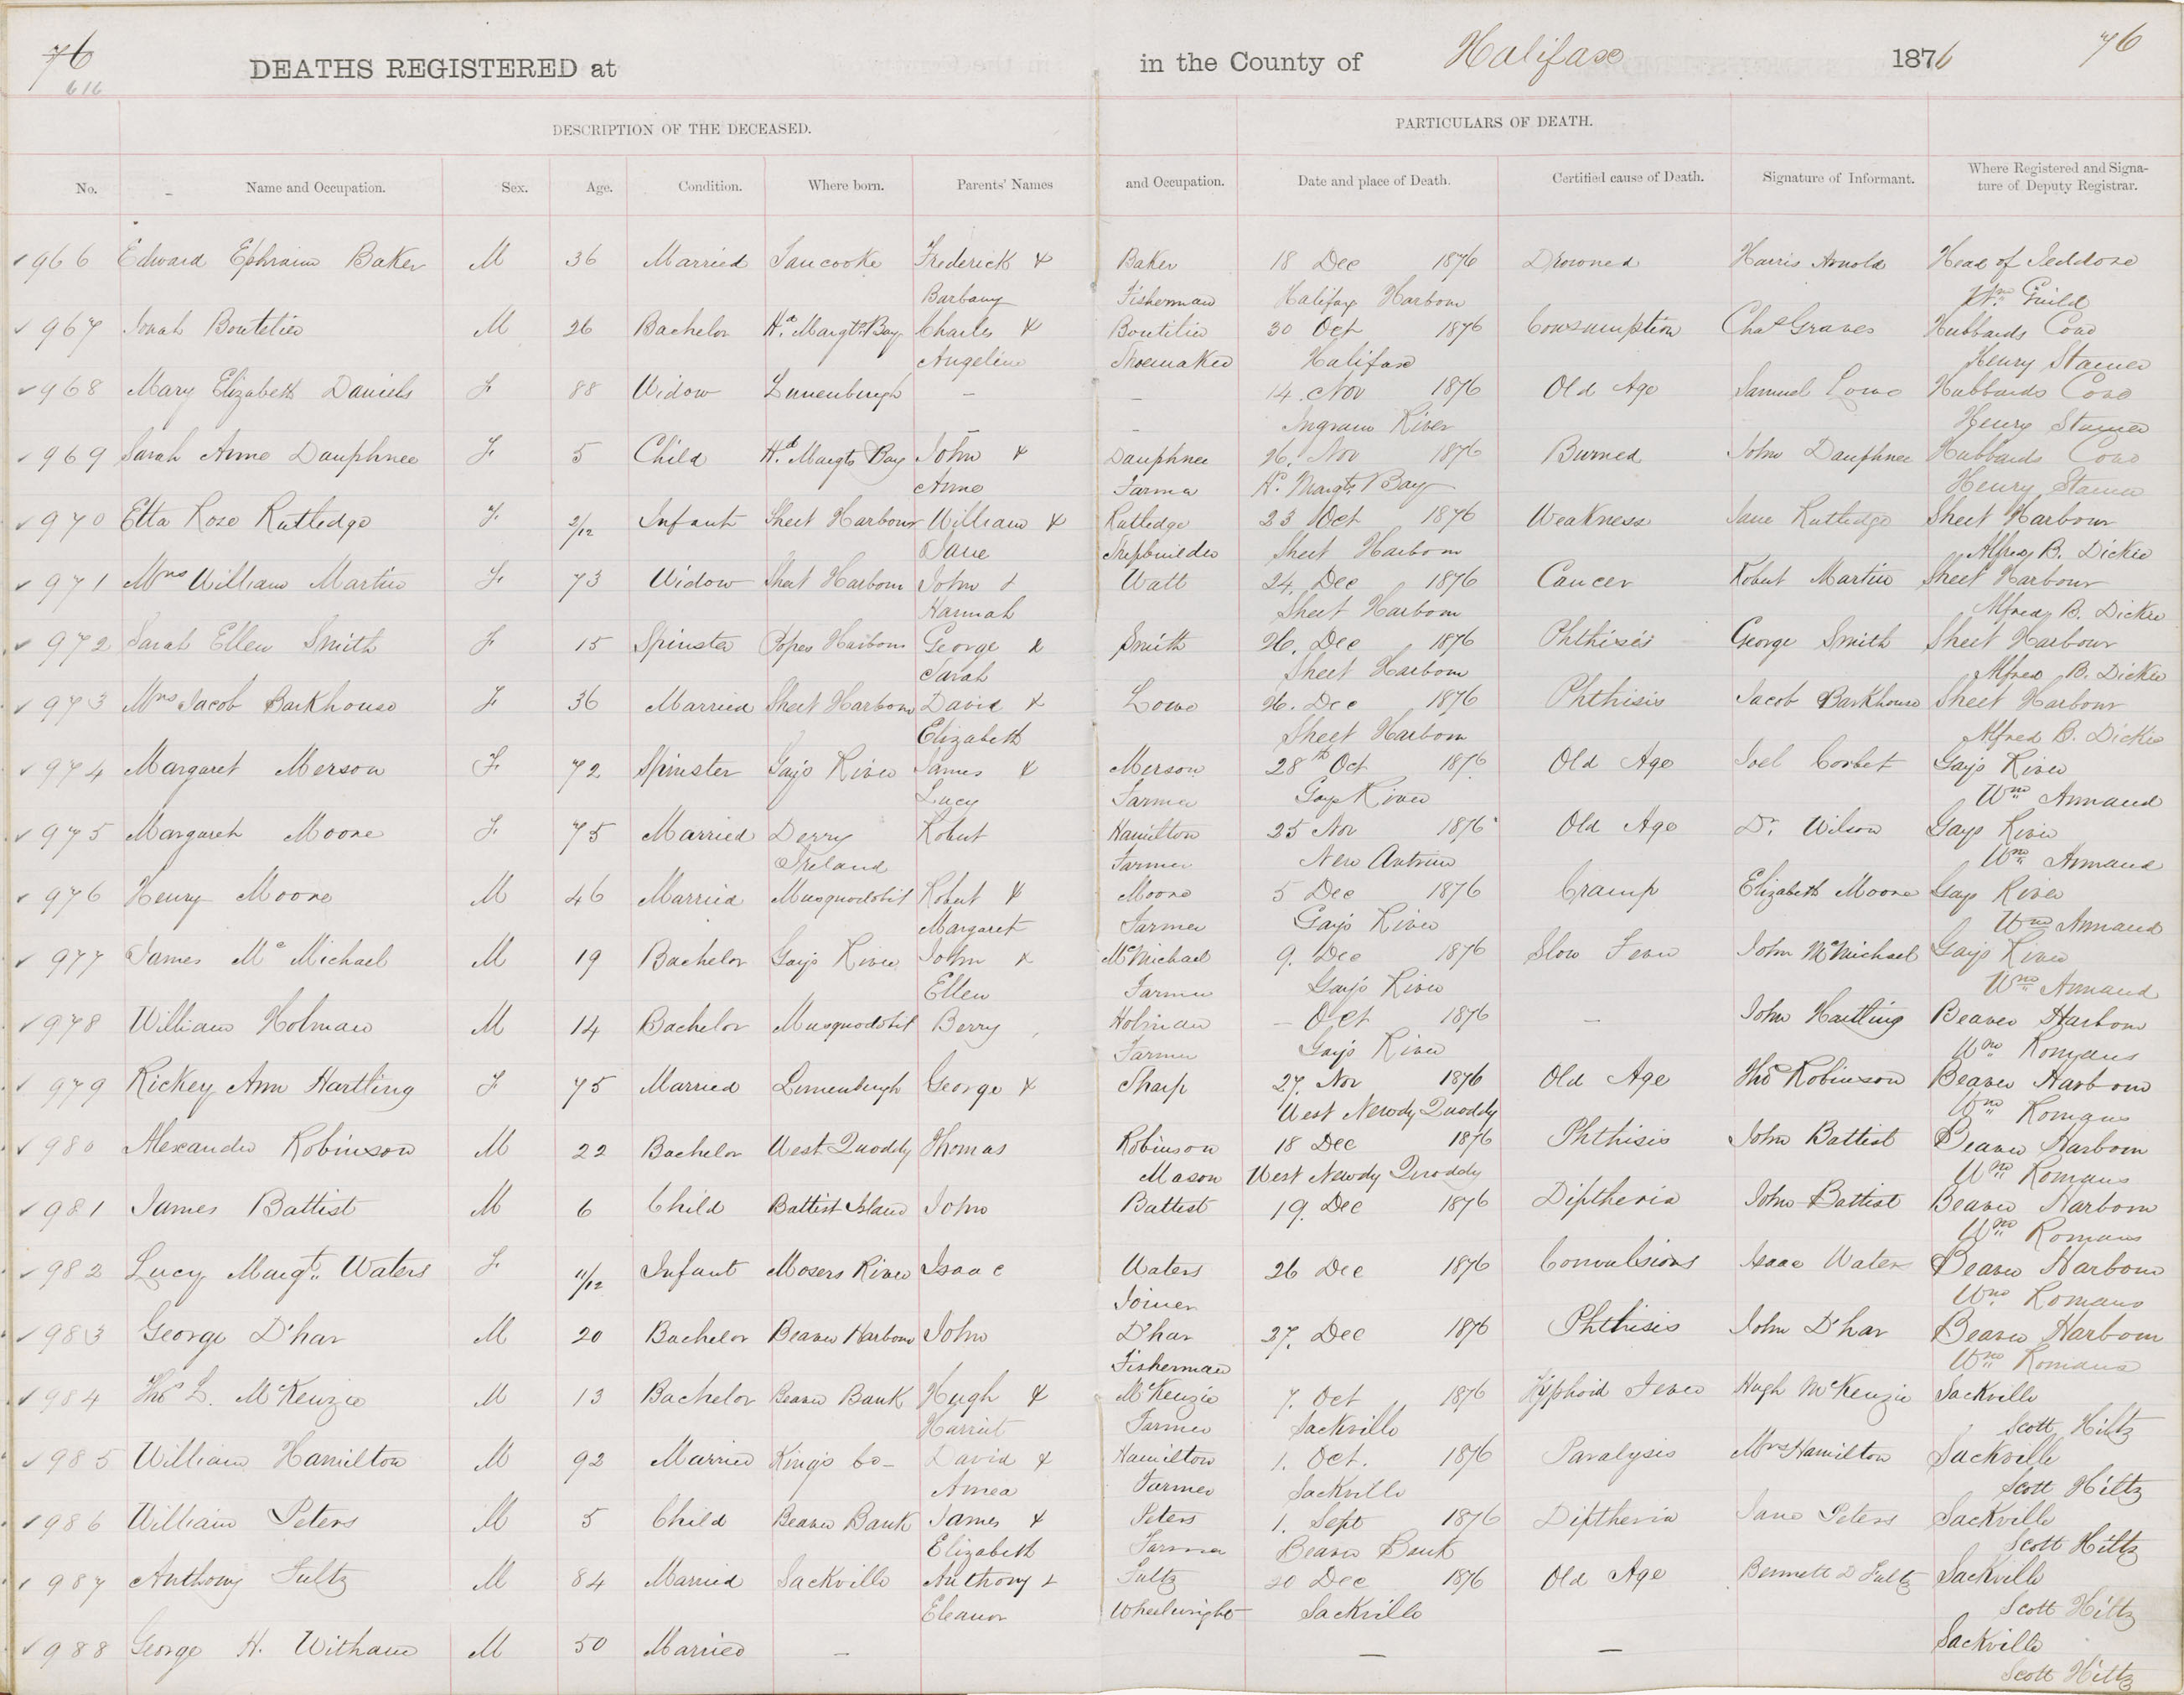 76
616
DEATHS REGISTERED at in the County of Halifax 1876 76
DESCRIPTION OF THE DECEASED. PARTICULARS OF DEATH.
No. Name and Occupation. Sex. Age. Condition. Where born. Parents' Names and Occupation. Date and place of Death. Certified cause of Death. Signature of Informant. Where Registered and Signature of Deputy Registrar.
966 Edward Ephraim Baker M 36 Married Tancooke Frederick & Baker 18 Dec 1876 Drowned Harris Arnold Head of Jeddore
Barbany Fisherman Halifax Harbour Wm Guild
967 Jonah Boutelier M 26 Bachelor Hd. Margts Bay Charles & Boutilier 30 Oct 1876 Consumption Chas Graves Hubbards Cove
Angeline Shoemaker Halifax Henry Stamer
968 Mary Elizabeth Daniels F 88 Widow Lunenburgh – – 14 Nov 1876 Old Age Samuel Lowe Hubbards Cove
– – Ingram River Henry Stamer
969 Sarah Anne Dauphnee F 5 Child Hd. Margts Bay John & Dauphnee 26. Nov 1876 Burned John Dauphnee Hubbards Cove
Anne Farmer Hd. Margts Bay Henry Stamer
970 Etta Rose Rutledge F 2/12 Infant Sheet Harbour William & Rutledge 23 Oct 1876 Weakness Jane Rutledge Sheet Harbour
Jane Shipbuilder Sheet Harbour Alfred B. Dickie
971 Mrs William Martin F 73 Widow Sheet Harbour John & Watt 24. Dec 1876 Cancer Robert Martin Sheet Harbour
Hannah Sheet Harbour Alfred B. Dickie
972 Sarah Ellen Smith F 15 Spinster Popes Harbour George & Smith 26. Dec 1876 Phthisis George Smith Sheet Harbour
Sarah Sheet Harbour Alfred B. Dickie
973 Mrs Jacob Barkhouse F 36 Married Sheet Harbour David & Lowe 26. Dec 1876 Phthisis Jacob Barkhouse Sheet Harbour
Elizabeth Sheet Harbour Alfred B. Dickie
974 Margaret Merson F 72 Spinster Gays River James & Merson 28th Oct 1876 Old Age Joel Corbet Gays River
Lucy Farmer Gays River Wm Annand
975 Margaret Moore F 75 Married Derry Robert Hamilton 25 Nov 1876 Old Age Dr. Wilson Gays River
Ireland Farmer New Antrim Wm Annand
976 Henry Moore M 46 Married Musquodobit Robert & Moore 5 Dec 1876 Cramp Elizabeth Moore Gays River
Margaret Farmer Gays River Wm Annand
977 James Mc Michael M 19 Bachelor Gays River John & McMichael 9. Dec 1876 Slow Fever John McMichael Gays River
Ellen Farmer Gays River Wm Annand
978 William Holman M 14 Bachelor Musquodobit Berry Holman – Oct 1876 – John Hartling Beaver Harbour
Farmer Gays River Wm Romans
979 Rickey Ann Hartling F 75 Married Lunenburgh George & Sharp 27. Nov 1876 Old Age Thos Robinson Beaver Harbour
West Newdy Quoddy Wm Romans
980 Alexander Robinson M 22 Bachelor West Quoddy Thomas Robinson 18 Dec 1876 Phthisis John Battist Beaver Harbour
Mason West Newdy Quoddy Wm Romans
981 James Battist M 6 Child Battist Island John Battist 19. Dec 1876 Diptheria John Battist Beaver Harbour
Wm Romans
982 Lucy Margt. Waters F 11/12 Infant Mosers River Isaac Waters 26 Dec 1876 Convulsions Isaac Waters Beaver Harbour
Joiner Wm Romans
983 George D'har M 20 Bachelor Beaver Harbour John D'har 27. Dec 1876 Phthisis John D'har Beaver Harbour
Fisherman Wm Romans
984 Thos L. McKenzie M 13 Bachelor Beaver Bank Hugh & McKenzie 7. Oct 1876 Typhoid Fever Hugh McKenzie Sackville
Harriet Farmer Sackville Scott Hiltz
985 William Hamilton M 92 Married Kings Co– David & Hamilton 1. Oct. 1876 Paralysis Mrs Hamilton Sackville
Amea Farmer Sackville Scott Hiltz
986 William Peters M 5 Child Beaver Bank James & Peters 1. Sept 1876 Diptheria Jane Peters Sackville
Elizabeth Farmer Beaver Bank Scott Hiltz
987 Anthony Fultz M 84 Married Sackville Anthony & Fultz 20 Dec 1876 Old Age Bennett D Fultz Sackville
Eleanor Wheelwright Sackville Scott Hiltz
988 George H. Witham M 50 Married – – – Sackville
Scott Hiltz